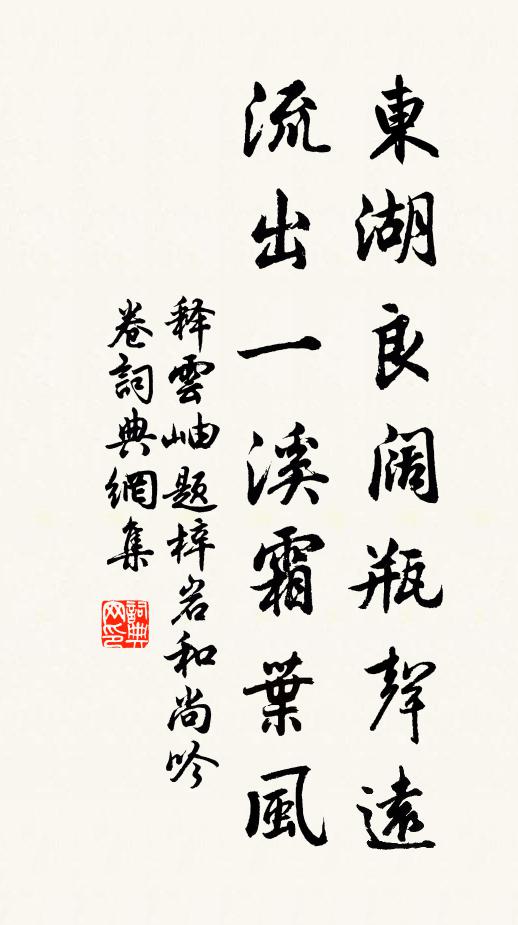 東湖良阔瓶聲遠
流出一溪霜葉風
释雲岫题梓岩和尚吟
卷詞典網集
詞典网印